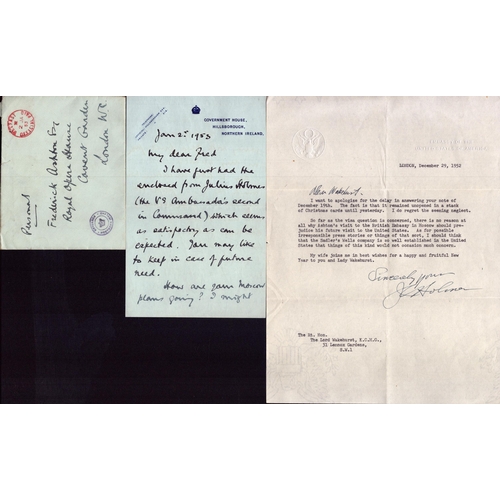 Personal
Frederick Ashton Esq
Royal Opera House
Covent Garden
London W.C.
GOVERNMENT HOUSE,
HILLSBOROUGH,
NORTHERN IRELAND.
Jan 2nd 1953
My dear Fred
I have just had the
enclosed from Julius Holmes
(the US Ambassada's second
in Command) which seems
as satisfactory as can be
expected. You may like
to keep in case of future
need.
How are your Moscow
plans going? I might
LONDON, December 29, 1952
I want to apologize for the delay in answering your note of
December 19th. The fact is that it remained unopened in a stack
of Christmas cards until yesterday. I do regret the seeming neglect.
So far as the visa question is concerned, there is no reason at
all why Ashton's visit to the British Embassy in Moscow should pre-
judice his future visit to the United States. As for possible
irresponsible press stories or things of that sort, I should think
that the Sadler's Wells company is so well established in the United
States that things of this kind would not occasion much concern.
My wife joins me in best wishes for a happy and fruitful New
Year to you and Lady Wakehurst.
Sincerely yours
The Rt. Hon.
The Lord Wakehurst, K.C.M.G.,
31 Lennox Gardens,
S.W.1